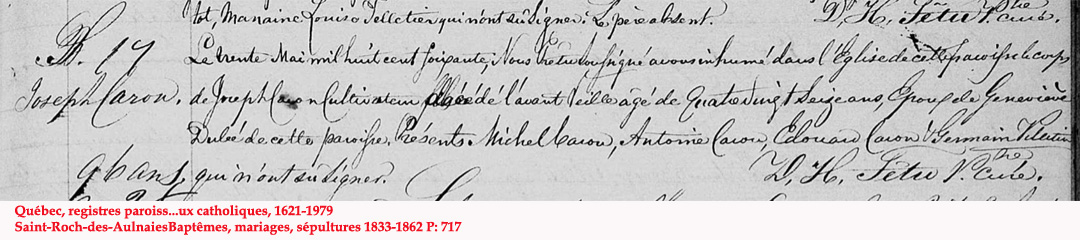 tot, Manaine Louise Pelletier qui n'ont su signer. Le père absent.
D. H. Têtu Ptre Curé.
S. 17
Joseph Caron.
96 ans.
Le trente Mai mil huit cent soixante, Nous Prêtre soussigné avons inhumé dans l'Eglise de cette paroisse le corps
de Joseph Caron Cultivateur décédé de l'avant veille âgé de Quatrevingt Seize ans, Epoux de Geneviève
Dubé de cette paroisse. Présents Michel Caron, Antoine Caron, Edouard Caron & Germain Pelletier
qui n'ont su signer.
D. H. Têtu Ptre Curé.
Québec, registres paroiss...ux catholiques, 1621-1979
Saint-Roch-des-AulnaiesBaptêmes, mariages, sépultures 1833-1862 P: 717